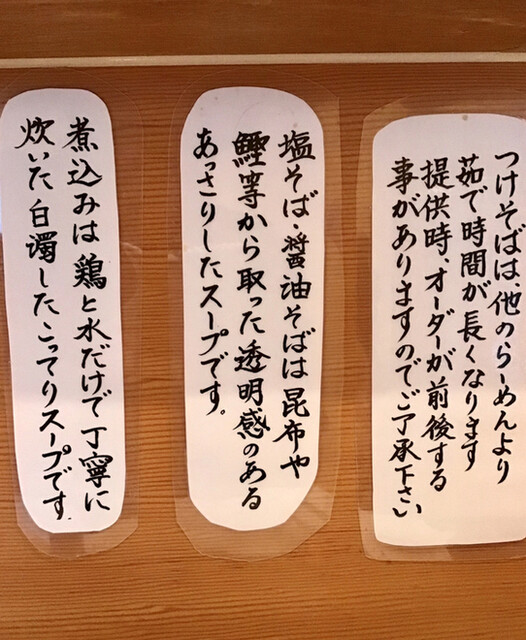 つけそばは、他のらーめんより
茹で時間が長くなります
提供時、オーダーが前後する
事がありますのでご了承下さい
塩そば・醤油そばは昆布や
鰹等から取った透明感のある
あっさりしたスープです。
煮込みは鶏と水だけで丁寧に
炊いた白濁したこってりスープです。